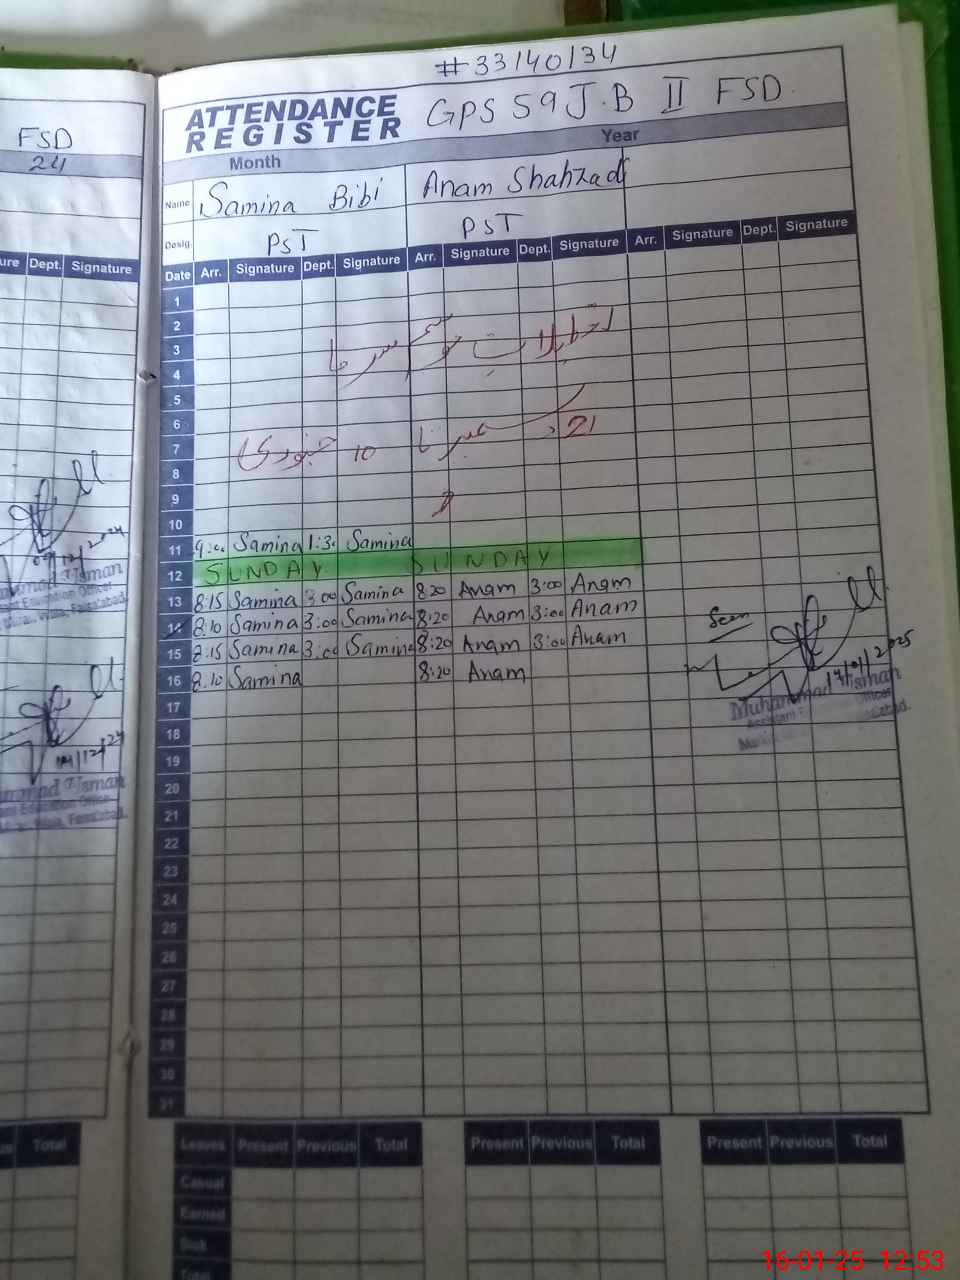 #33140134
ATTENDANCE REGISTER GPS 59 J.B II FSD
Month Year
Name Samina Bibi Anam Shahzad
Desig. PST PST
Date Arr. Signature Dept. Signature Arr. Signature Dept. Signature Arr. Signature Dept. Signature
1
2
تعطیلات موسم سرما
3
4
5
6
21 دسمبر تا 10 جنوری
7
8
9
10
11 9:00 Samina 1:30 Samina
12 SUNDAY SUNDAY
13 8:15 Samina 3:00 Samina 8:20 Anam 3:00 Anam
14 8:10 Samina 3:00 Samina 8:20 Anam 3:00 Anam
15 8:15 Samina 3:00 Samina 8:20 Anam 3:00 Anam
16 8:10 Samina 8:20 Anam
Seen
14/01/2025
Muhammad Usman
17
18
19
20
21
22
23
24
25
26
27
28
29
30
31
Leaves Present Previous Total Present Previous Total Present Previous Total
Casual
Earned
Sick
Total
FSD
24
Dept. Signature
09/12/2024
Usman
Education Officer
Faisalabad.
Usman
Education Officer
Faisalabad.
Total
16-01-25 12:53